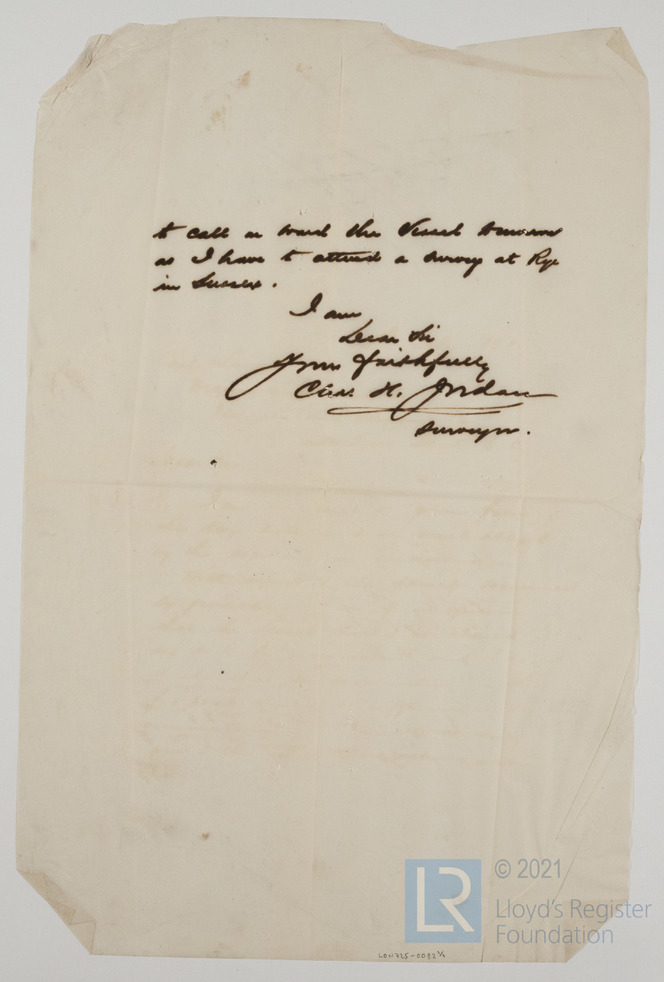 to call on board the Vessel tomorrow
as I have to attend a survey at Rye
in Sussex.
I am
Dear Sir
Yours faithfully
Chas. H. Jordan
Surveyor.
LR
© 2021
Lloyd's Register
Foundation